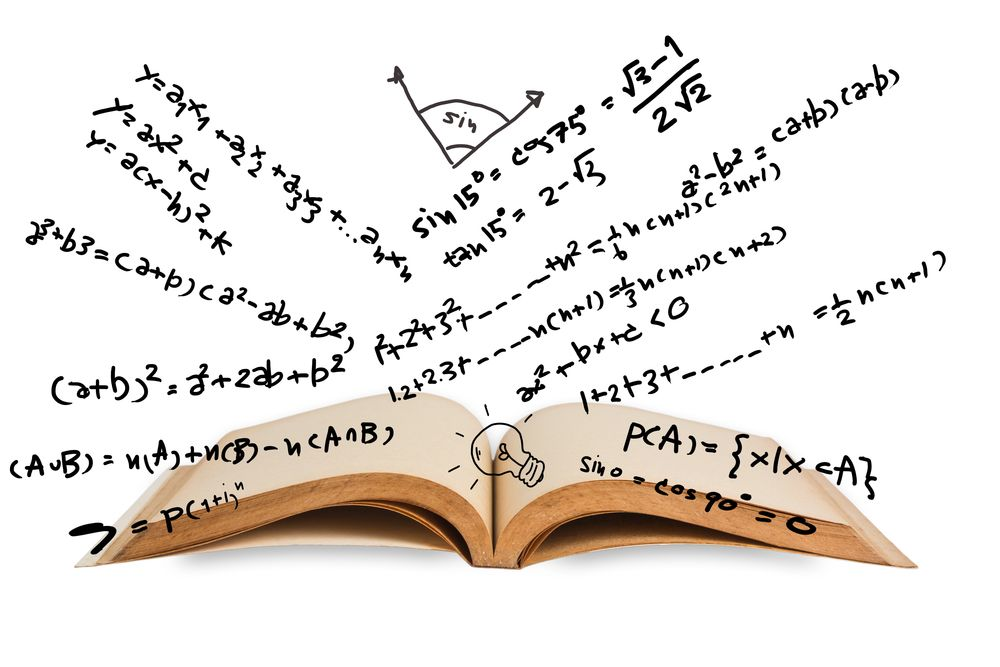 y=a₁x₁+a₂x₂+a₃x₃+...aₙxₙ
y=ax²+c
y=a(x-h)²+k
a³+b3=(a+b)(a²-ab+b²)
(a+b)²=a²+2ab+b²
(A∪B)=n(A)+n(B)-n(A∩B)
=P(1+i)ⁿ
sin
sin15°=cos75°=√3-1/2√2
tan15°=2-√3
a²-b²=(a+b)(a-b)
1²+2²+3²+------+n²=1/6n(n+1)(2n+1)
1.2+2.3+------n(n+1)=1/3n(n+1)(n+2)
ax²+bx+c<0
1+2+3+------+n=1/2n(n+1)
P(A)={x|x⊂A}
sin0=cos90°=0